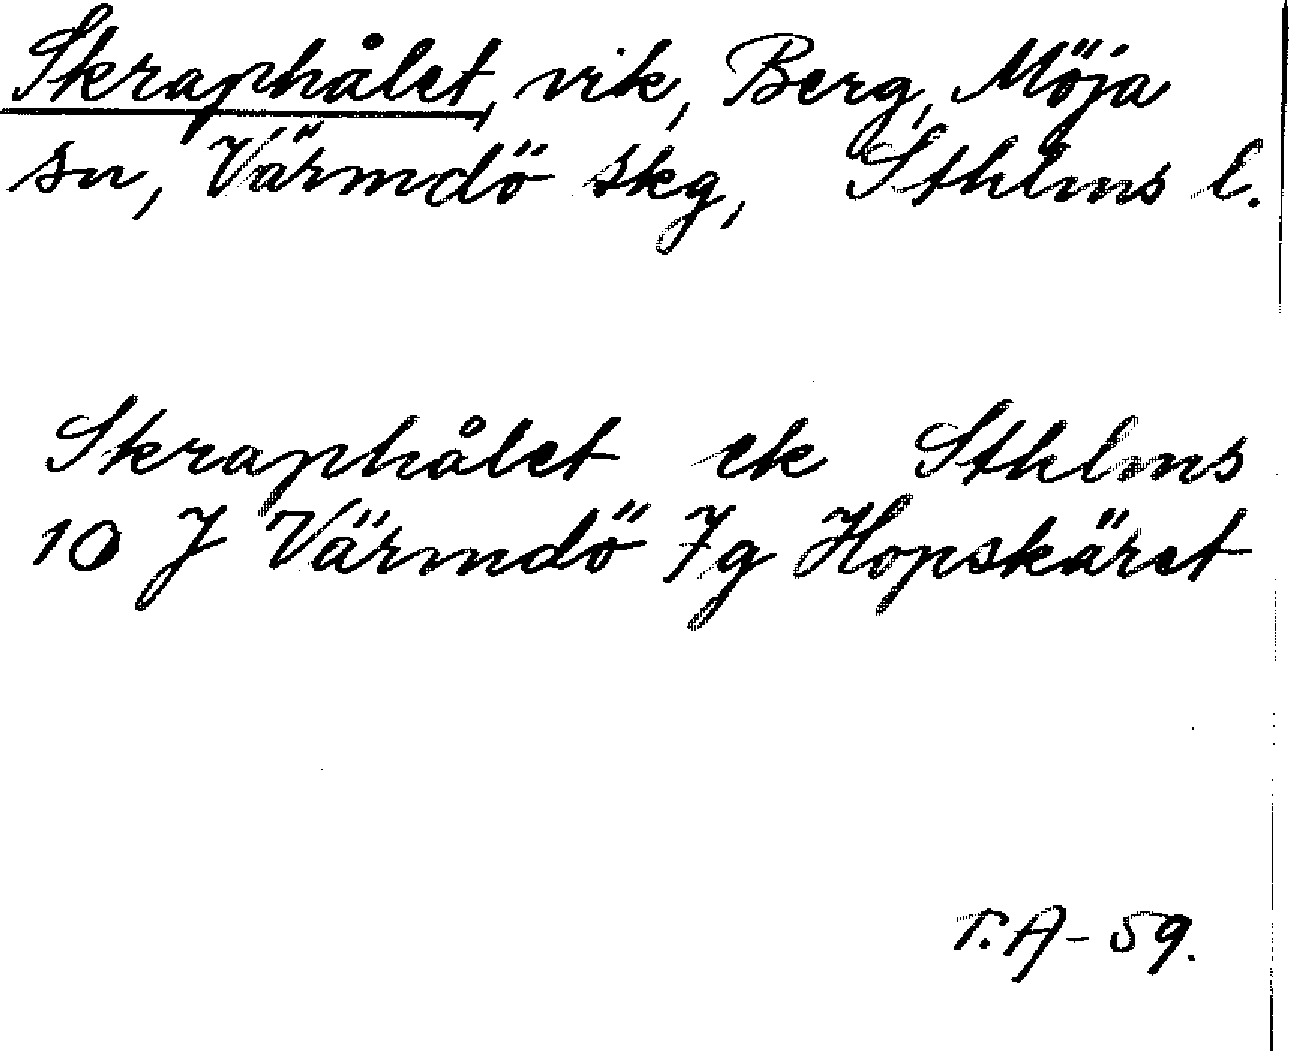 Skraphålet, vik, Berg, Möja
sn, Värmdö skg, Sthlms l.
Skraphålet ek Sthlms
10 J Värmdö 7g Hopskäret
T.A-59.